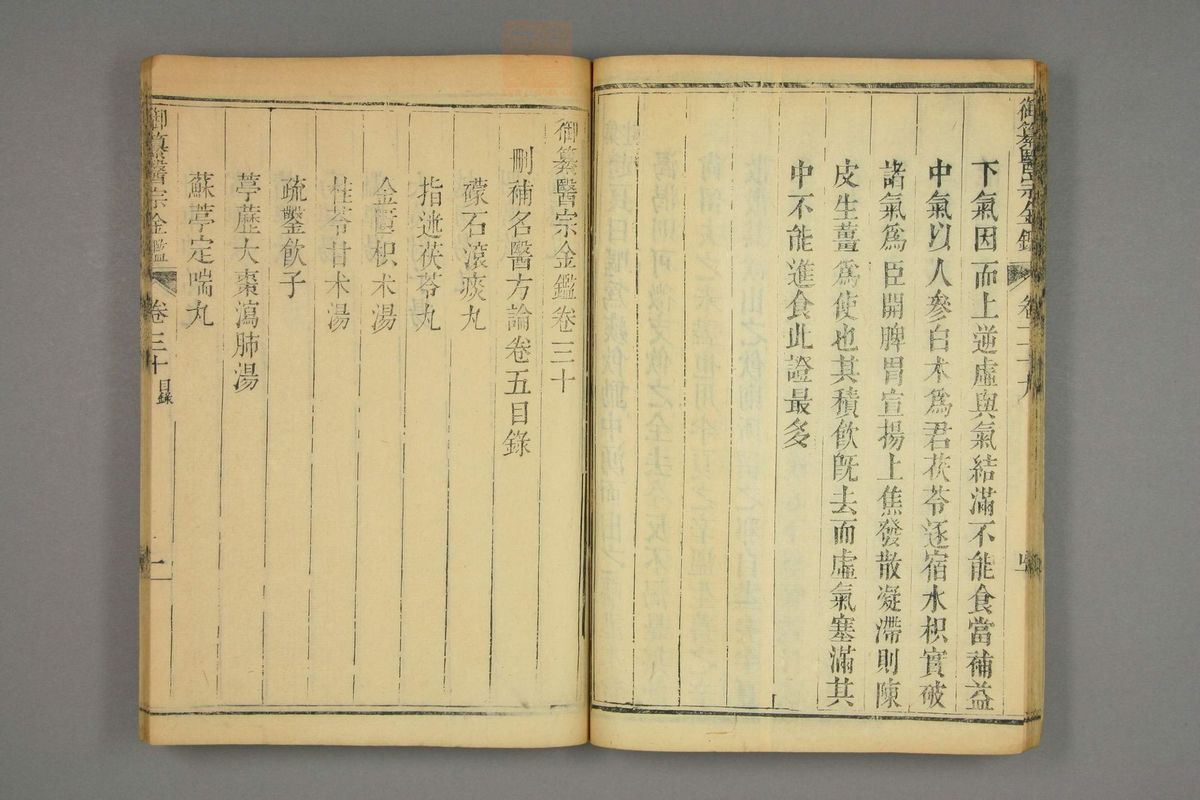 御纂醫宗金鑑
卷二十九
下氣因而上逆虛與氣結滿不能食當補益
中氣以人參白朮爲君茯苓逐宿水枳實破
諸氣爲臣開脾胃宣揚上焦發散凝滯則陳
皮生薑爲使也其積飮旣去而虛氣塞滿其
中不能進食此證最多
御纂醫宗金鑑卷三十
刪補名醫方論卷五目錄
礞石滾痰丸
指迷茯苓丸
金匱枳朮湯
桂苓甘朮湯
疏鑿飮子
葶藶大棗瀉肺湯
蘇葶定喘丸
御纂醫宗金鑑
卷三十
目錄
一